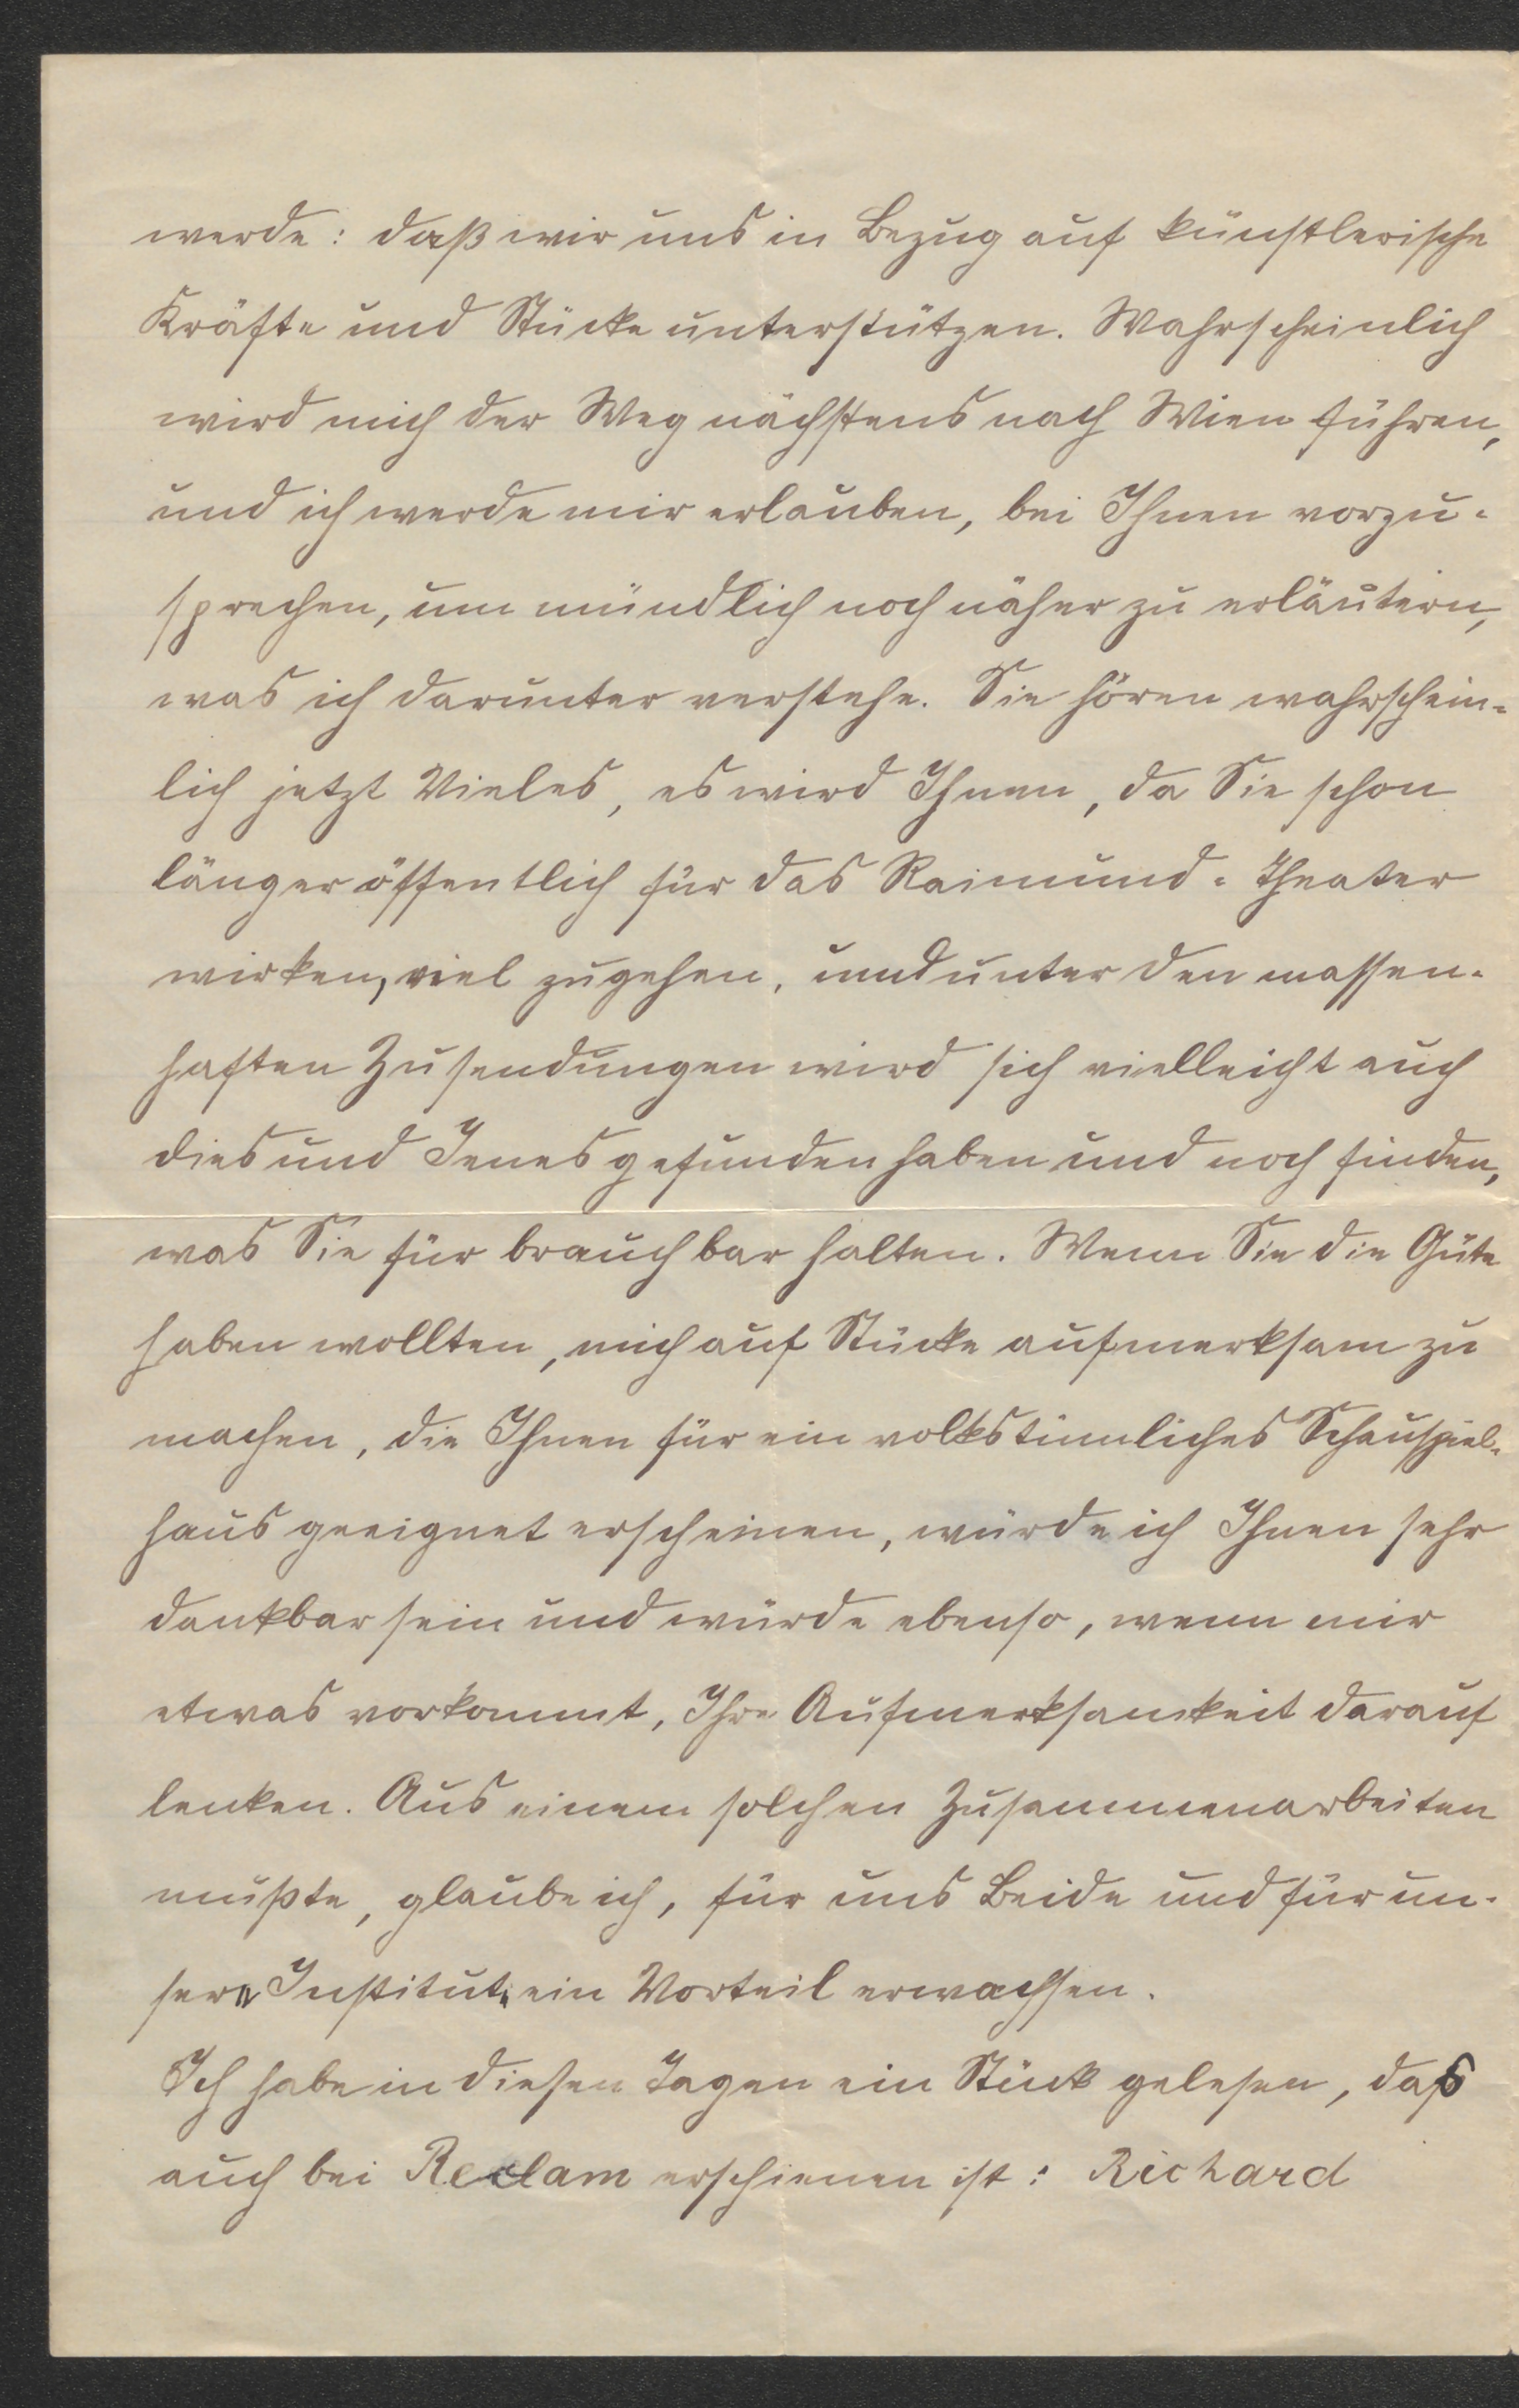 werde: daß wir uns in Bezug auf künstlerische
Kräfte und Stücke unterstützen. Wahrscheinlich
wird mich der Weg nächstens nach Wien führen,
und ich werde mir erlauben, bei Ihnen vorzu-
sprechen, um mündlich noch näher zu erläutern,
was ich darunter verstehe. Sie hören wahrschein-
lich jetzt Vieles, es wird Ihnen, da Sie schon
länger öffentlich für das Raimund-Theater
wirken, viel zugehen, und unter den massen-
haften Zusendungen wird sich vielleicht auch
dies und Jenes gefunden haben und noch finden,
was Sie für brauchbar halten. Wenn Sie die Güte
haben wollten, mich auf Stücke aufmerksam zu
machen, die Ihnen für ein volkstümliches Schauspiel-
haus geeignet erscheinen, würde ich Ihnen sehr
dankbar sein und würde ebenso, wenn mir
etwas vorkommt, Ihre Aufmerksamkeit darauf
lenken. Aus einem solchen Zusammenarbeiten
müßte, glaube ich, für uns Beide und für un-
sere Institute ein Vorteil erwachsen.
Ich habe in diesen Tagen ein Stück gelesen, das
auch bei Reclam erschienen ist: Richard